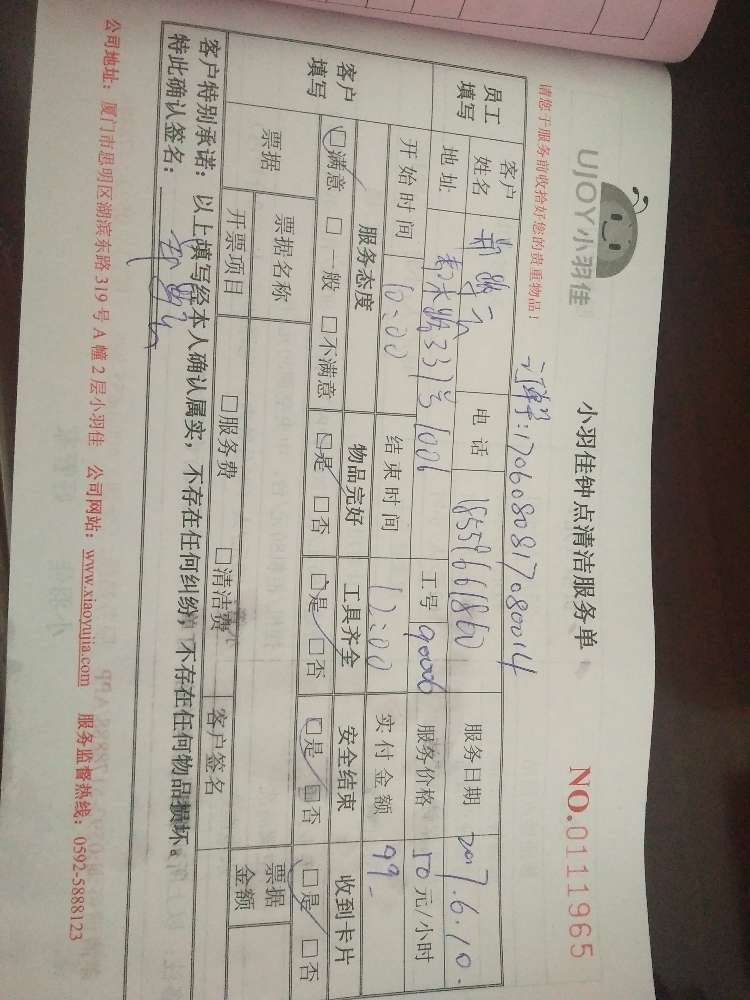 UJOY小羽佳
小羽佳钟点清洁服务单
NO.0111965
请您于服务前收拾好您的贵重物品！
1706080817080014
员工填写 客户姓名 电话 服务日期 2017.6.10.
地址 331号1006 工号 90006 服务价格 50元/小时
开始时间 10:00 结束时间 12:00 实付金额 99-
客户填写 服务态度 物品完好 工具齐全 安全结束 收到卡片
□满意 □一般 □不满意 □是 □否 □是 □否 □是 □否 □是 □否
票据 票据名称 票据金额
开票项目 □服务费 □清洁费 客户签名
客户特别承诺：以上填写经本人确认属实，不存在任何纠纷，不存在任何物品损坏。
特此确认签名：
公司地址：厦门市思明区湖滨东路319号A幢2层小羽佳 公司网站：www.xiaoyujia.com 服务监督热线：0592-5888123